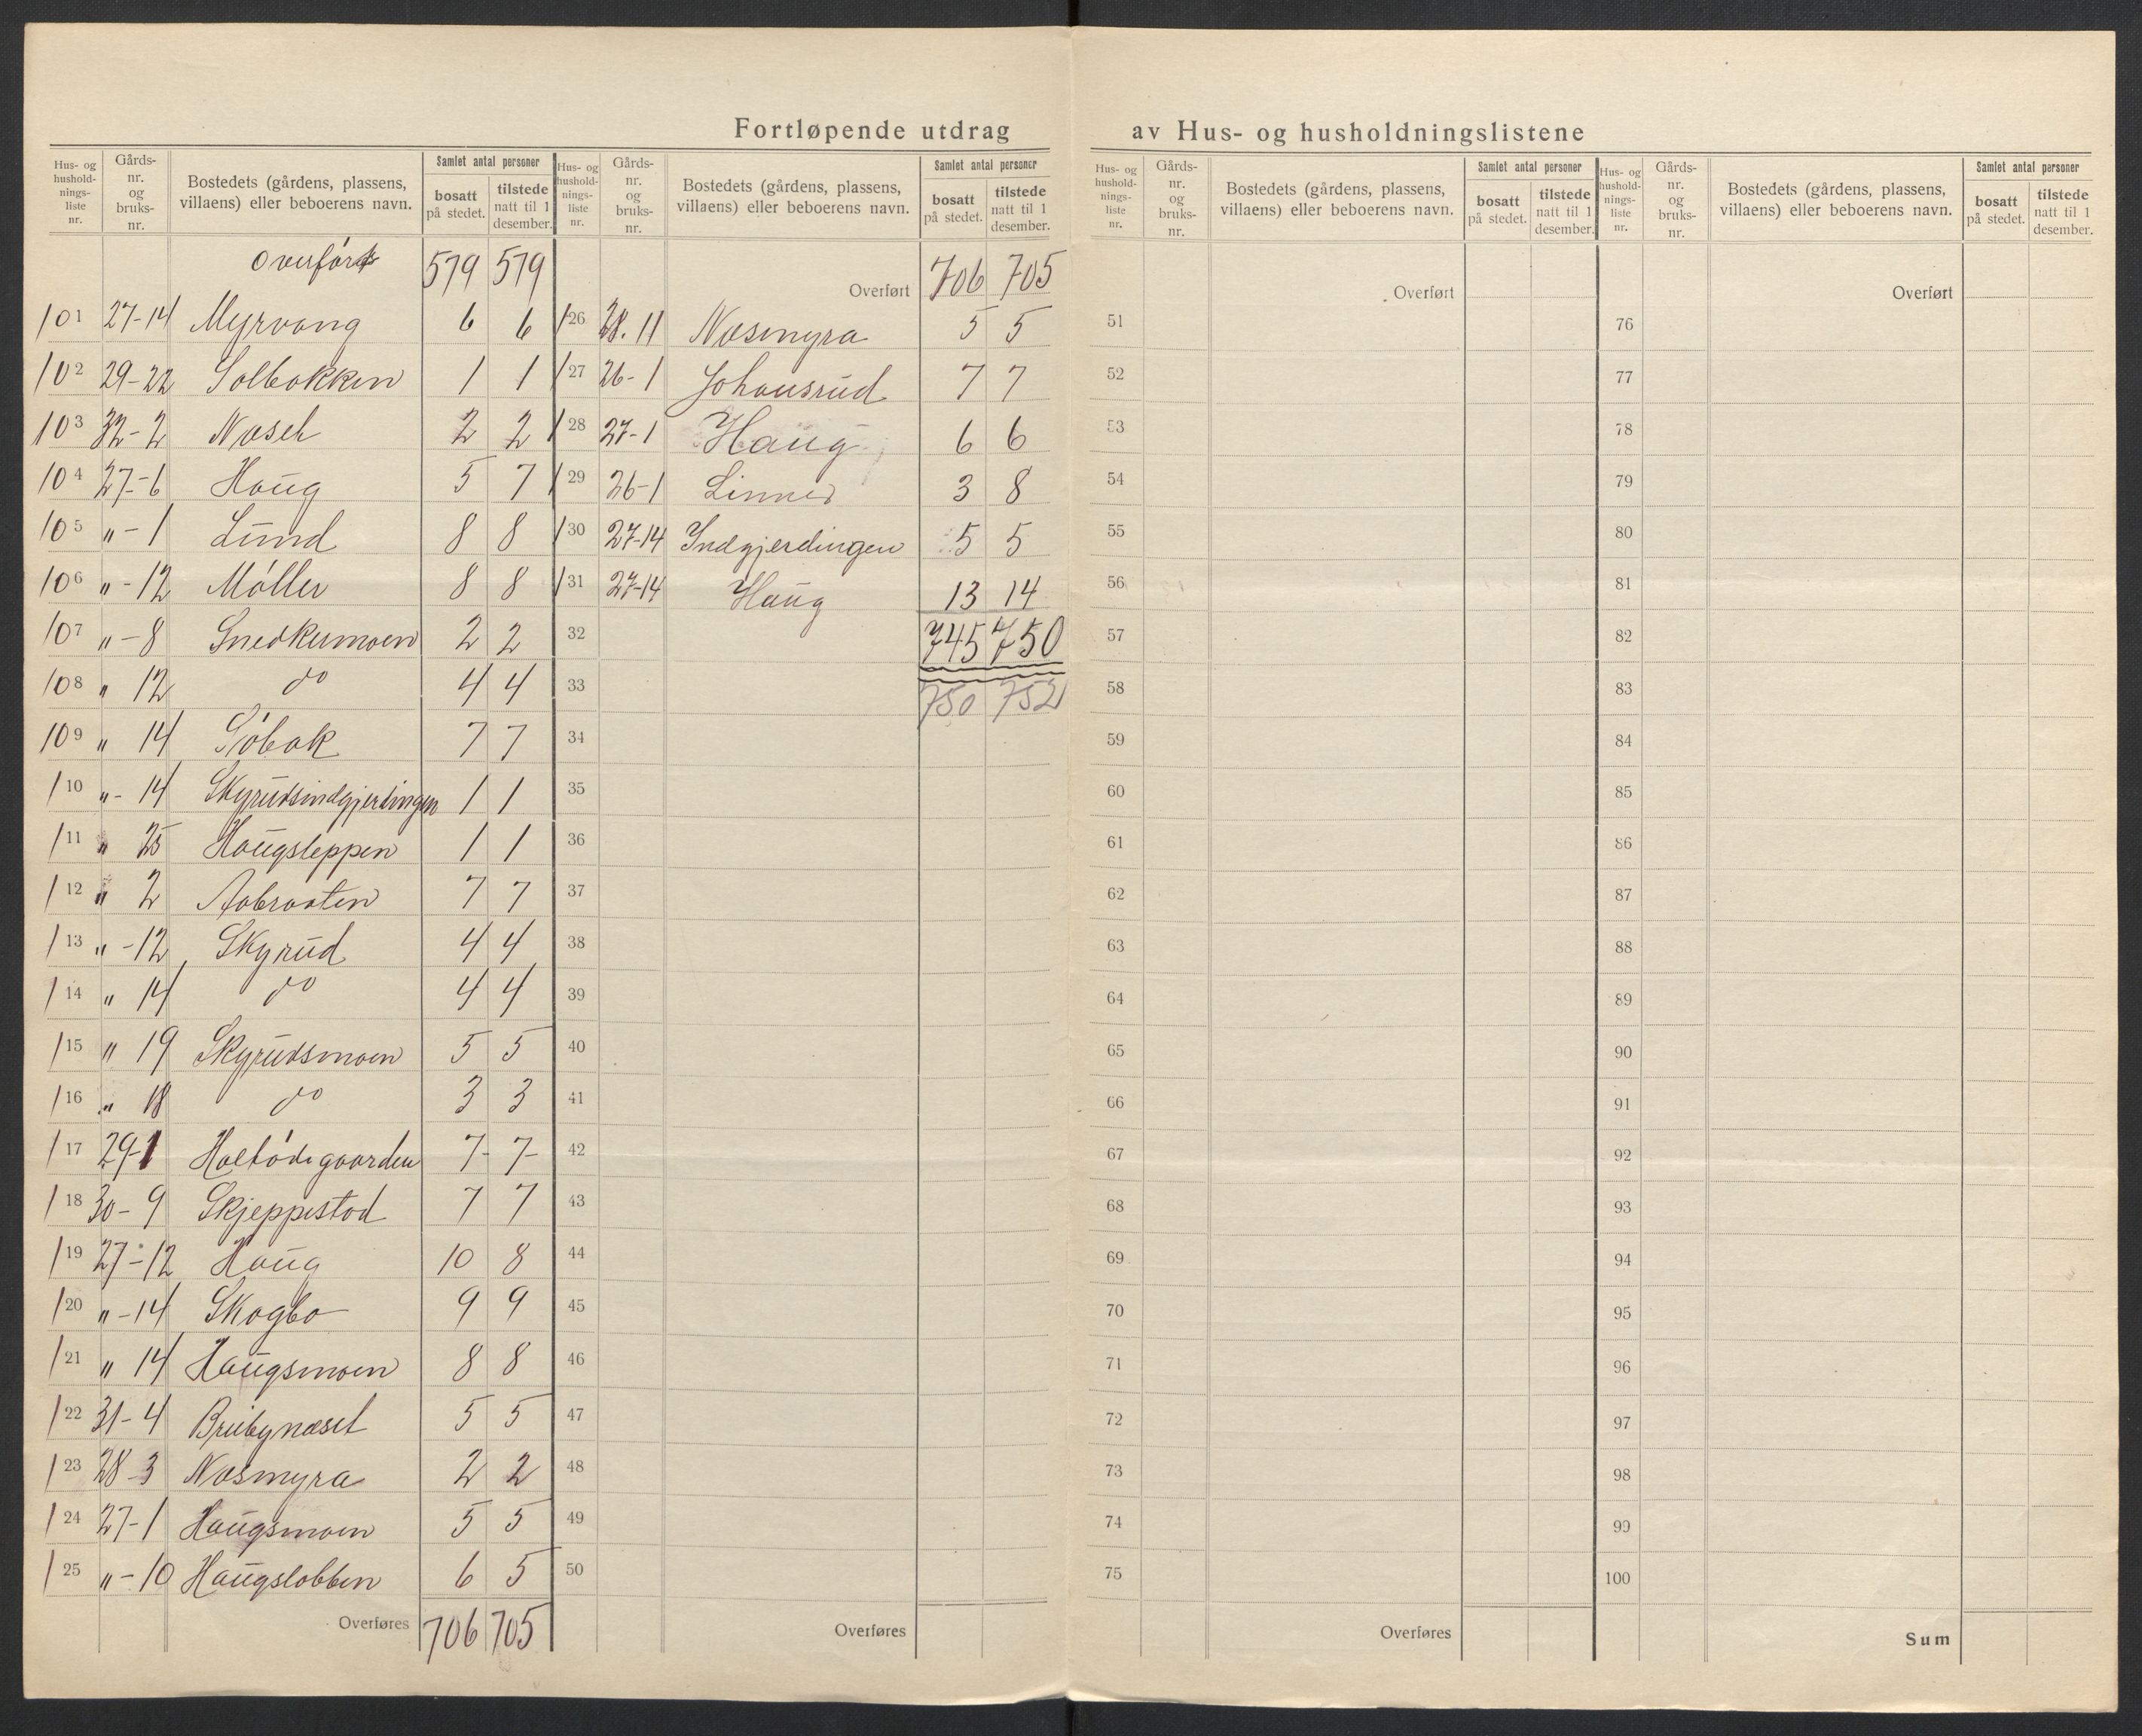 Fortløpende utdrag av Hus- og husholdningslistene
Hus- og hushold-nings-liste nr. | Gårds-nr. og bruks-nr. | Bostedets (gårdens, plassens, villaens) eller beboerens navn. | Samlet antal personer | bosatt på stedet. | tilstede natt til 1 desember.
Overført 579 579
101 27-14 Myrvang 6 6
102 29-22 Solbakken 1 1
103 32-2 Næset 2 2
104 27-6 Haug 5 7
105 „-1 Lund 8 8
106 „-12 Møller 8 8
107 „-8 Snedkermoen 2 2
108 „ 12 do 4 4
109 „ 14 Søbak 7 7
110 „-14 Skyrudsindgjerdingen 1 1
111 „ 25 Haugsleppen 1 1
112 „ 2 Aabraaten 7 7
113 „-12 Skyrud 4 4
114 „ 14 do 4 4
115 „ 19 Skyrudsmoen 5 5
116 „ 18 do 3 3
117 29-1 Holtødegaarden 7- 7-
118 30-9 Skjeppestad 7 7
119 27-12 Haug 10 8
120 „-14 Skogbo 9 9
121 „ 14 Haugsmoen 8 8
122 31-4 Brubynæset 5 5
123 28-3 Næsmyra 2 2
124 27-1 Haugsmoen 5 5
125 „-10 Haugslobben 6 5
Overføres 706 705
Hus- og hushold-nings-liste nr. | Gårds-nr. og bruks-nr. | Bostedets (gårdens, plassens, villaens) eller beboerens navn. | Samlet antal personer | bosatt på stedet. | tilstede natt til 1 desember.
Overført 706 705
126 28.11 Næsmyra 5 5
127 26-1 Johansrud 7 7
128 27-1 Haug 6 6
129 26-1 Linnes 3 8
130 27-14 Indgjerdingen 5 5
131 27-14 Haug 13 14
32 745 750
33 750 752
34
35
36
37
38
39
40
41
42
43
44
45
46
47
48
49
50
Overføres
Hus- og hushold-nings-liste nr. | Gårds-nr. og bruks-nr. | Bostedets (gårdens, plassens, villaens) eller beboerens navn. | Samlet antal personer | bosatt på stedet. | tilstede natt til 1 desember.
Overført
51
52
53
54
55
56
57
58
59
60
61
62
63
64
65
66
67
68
69
70
71
72
73
74
75
Overføres
Hus- og hushold-nings-liste nr. | Gårds-nr. og bruks-nr. | Bostedets (gårdens, plassens, villaens) eller beboerens navn. | Samlet antal personer | bosatt på stedet. | tilstede natt til 1 desember.
Overført
76
77
78
79
80
81
82
83
84
85
86
87
88
89
90
91
92
93
94
95
96
97
98
99
100
Sum